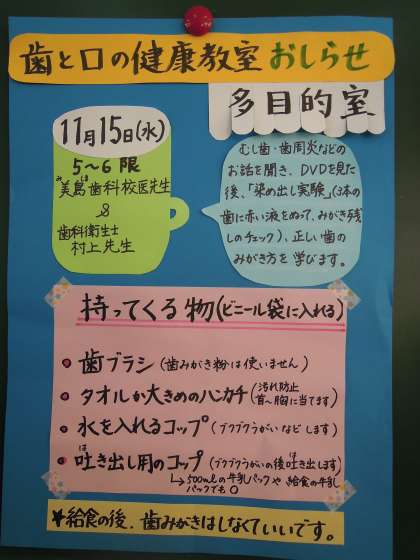 歯と口の健康教室おしらせ
多目的室
11月15日(水)
5〜6限
美島歯科校医先生
&
歯科衛生士
村上先生
むし歯・歯周炎などの
お話を聞き、DVDを見た
後、「染め出し実験」(3本の
歯に赤い液をぬって、みがき残
しのチェック)、正しい歯の
みがき方を学びます。
持ってくる物(ビニール袋に入れる)
• 歯ブラシ(歯みがき粉は使いません)
• タオルか大きめのハンカチ(汚れ防止 首〜胸に当てます)
• 水を入れるコップ(ブクブクうがいなどします)
• 吐き出し用のコップ(ブクブクうがいの後吐き出します)
↳500mlの牛乳パックや給食の牛乳
パックでも○
★給食の後、歯みがきはしなくていいです。